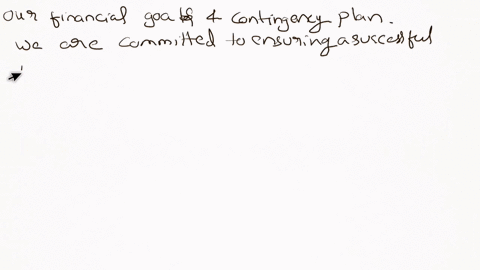 our financial goals & contingency plan.
we are committed to ensuring a successful